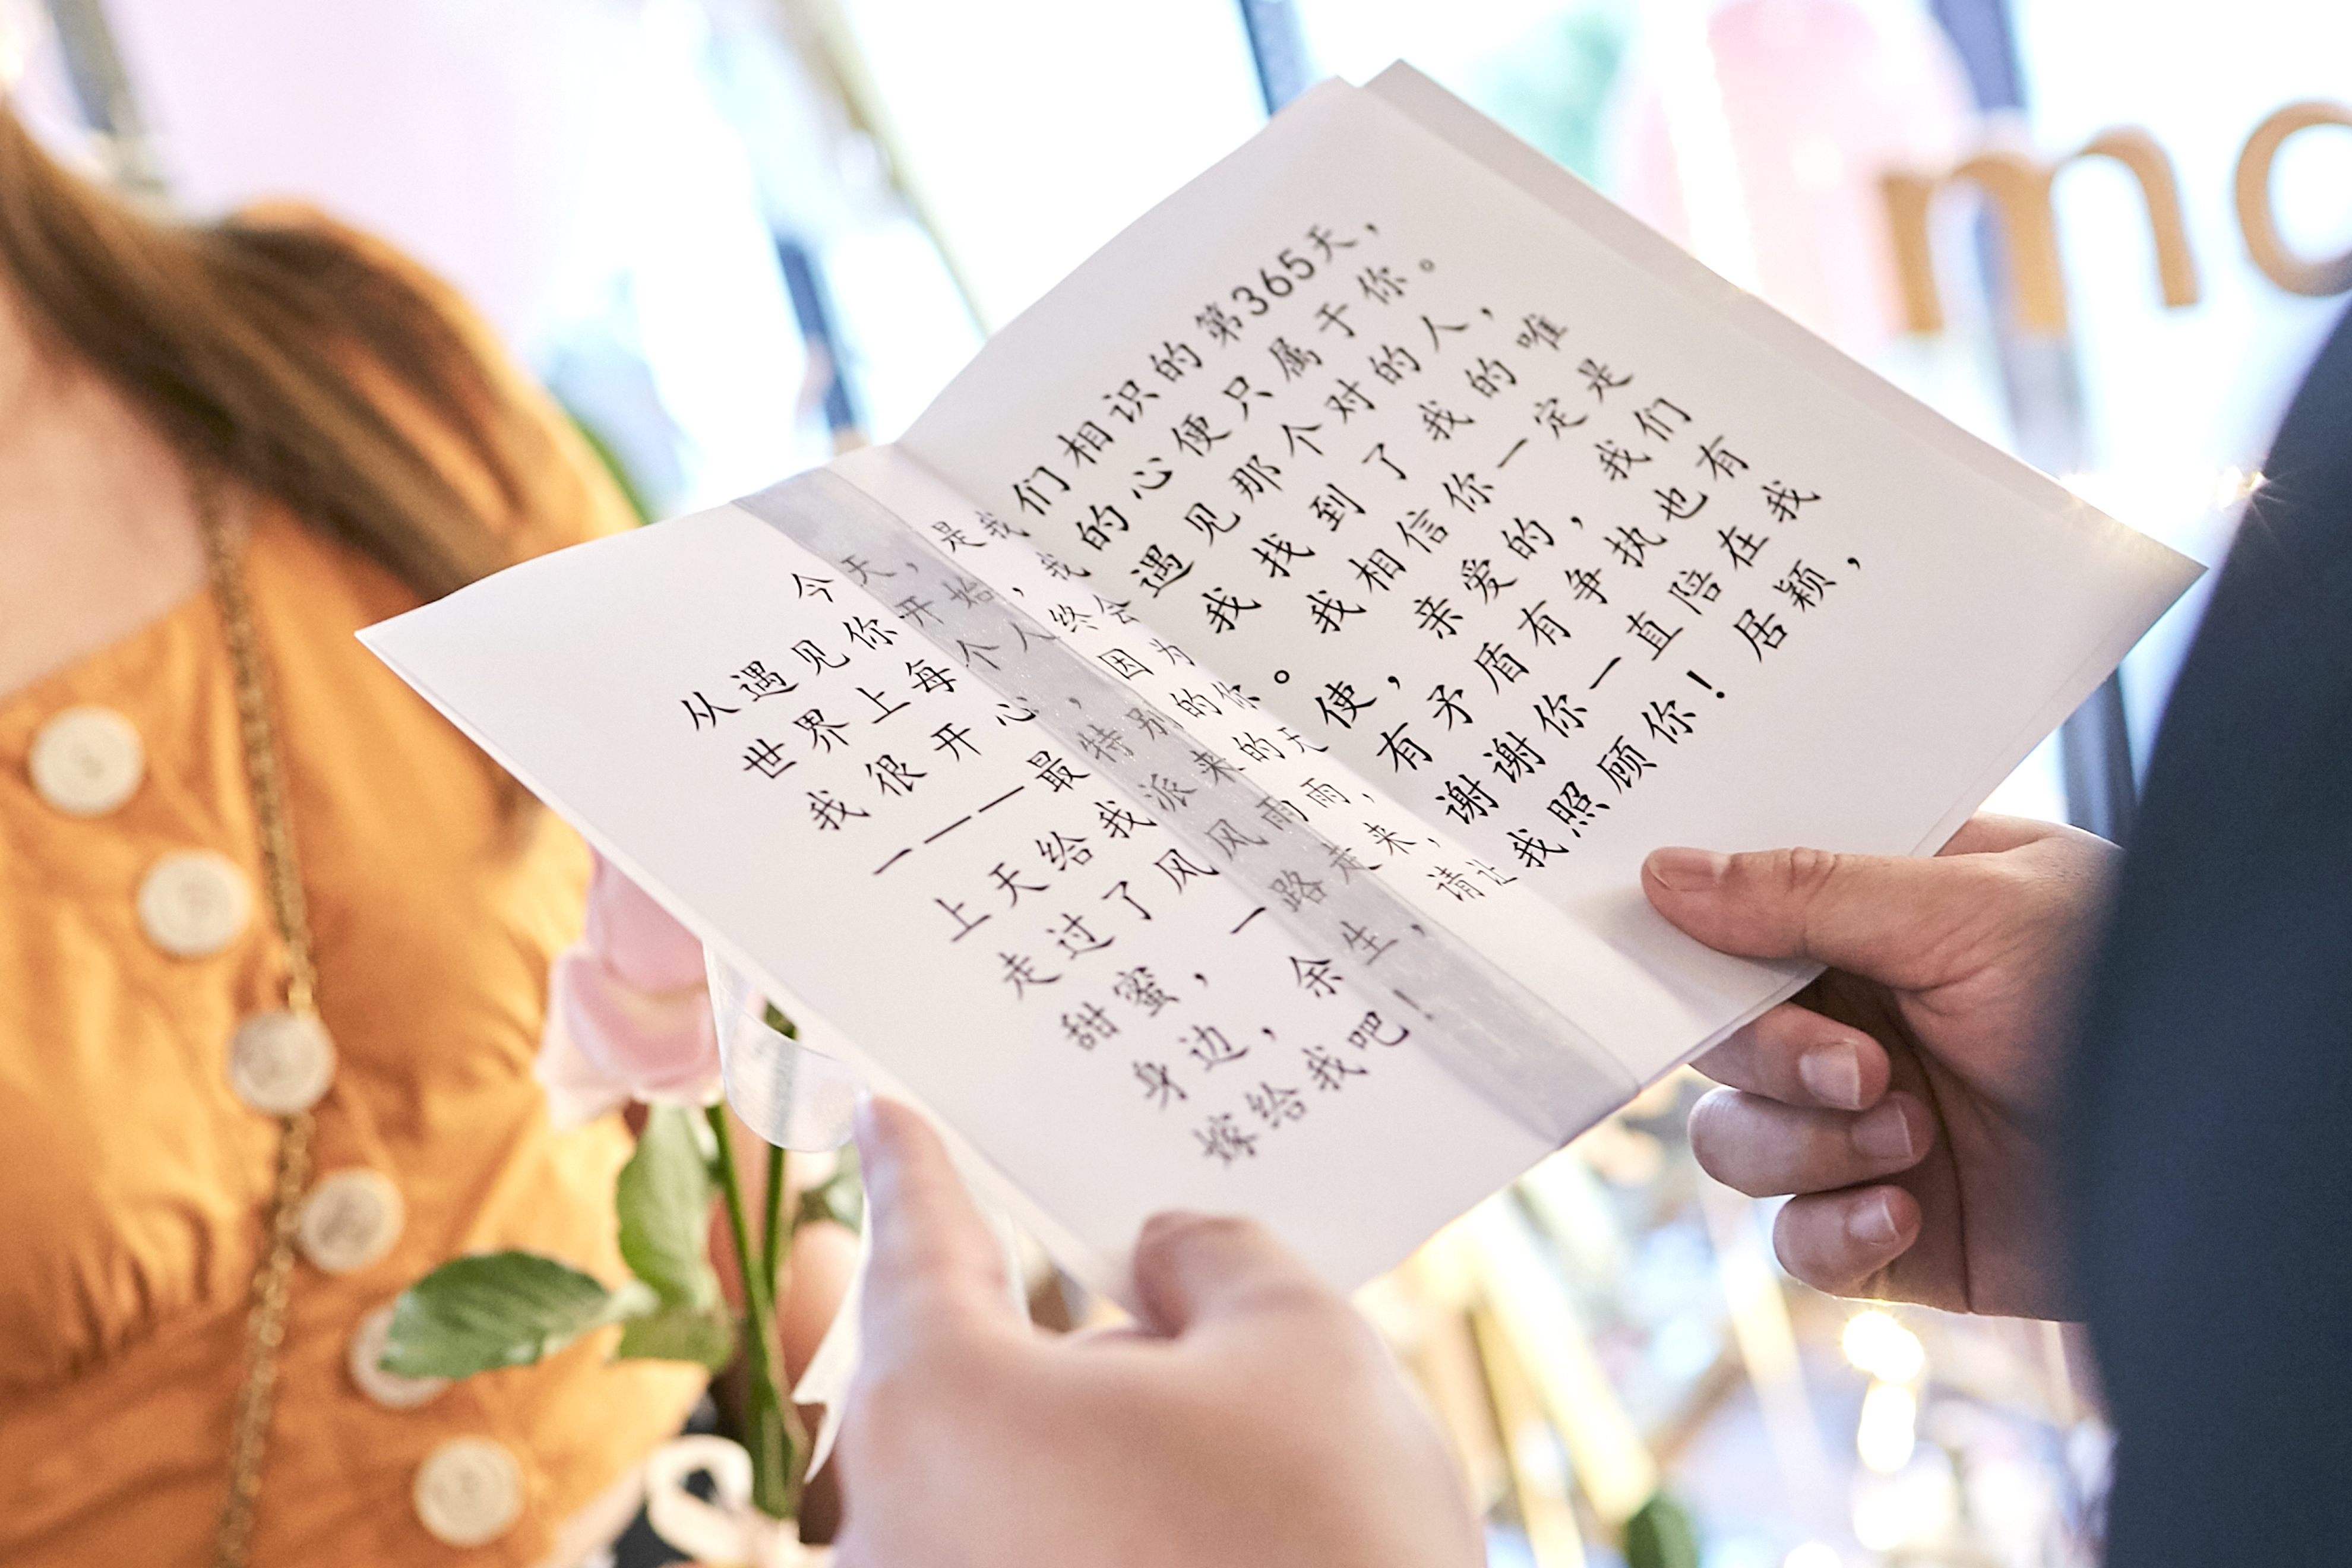 今天，是我们相识的第365天，
从遇见你开始，我的心便只属于你。
世界上每个人终会遇见那个对的人，
我很开心，因为我找到了我的唯
一——最特别的你。我相信你一定是
上天给我派来的天使，亲爱的，我们
走过了风风雨雨，有矛盾有争执也有
甜蜜，一路走来，谢谢你一直陪在我
身边，余生，请让我照顾你！居颖，
嫁给我吧！